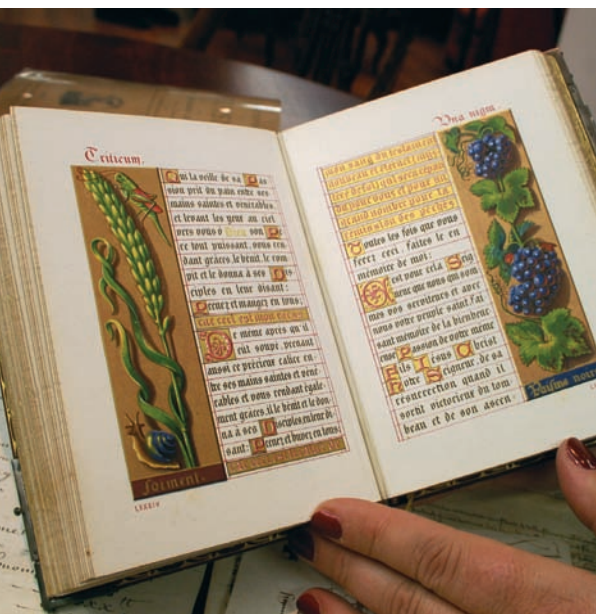 Triticum.
Qui la veille de sa Pas
sion prit du pain entre ses
mains saintes et vénérables
et levant les yeux au ciel
vers vous ô Dieu son Pe
re tout puissant, vous ren
dant grâces, le bénit, le rom
pit et le donna à ses Dis
ciples en leur disant:
Prenez et mangez en tous,
car ceci est mon corps
De même après qu'il
eut soupé, prenant
aussi ce précieux calice en
tre ses mains saintes et véné
rables et vous rendant égale
ment grâces, il le bénit et le don
na à ses Disciples en leur di
sant: Prenez et buvez en tous
forment.
Vna nigra.
mon sang du testament
nouveau et éternel
sera répan
du pour vous et pour un
grand nombre pour la
remission des péchés
Toutes les fois que vous
ferez ceci, faites le en
mémoire de moi:
C'est pour cela Seig
neur que nous qui som
mes vos serviteurs et avec
nous votre peuple saint fai
sant mémoire de la bienheur
euse Passion de votre même
Fils Jesus Christ
Notre Seigneur, de sa
résurrection quand il
sortit victorieux du tom
beau et de son ascen
Raisins noirs